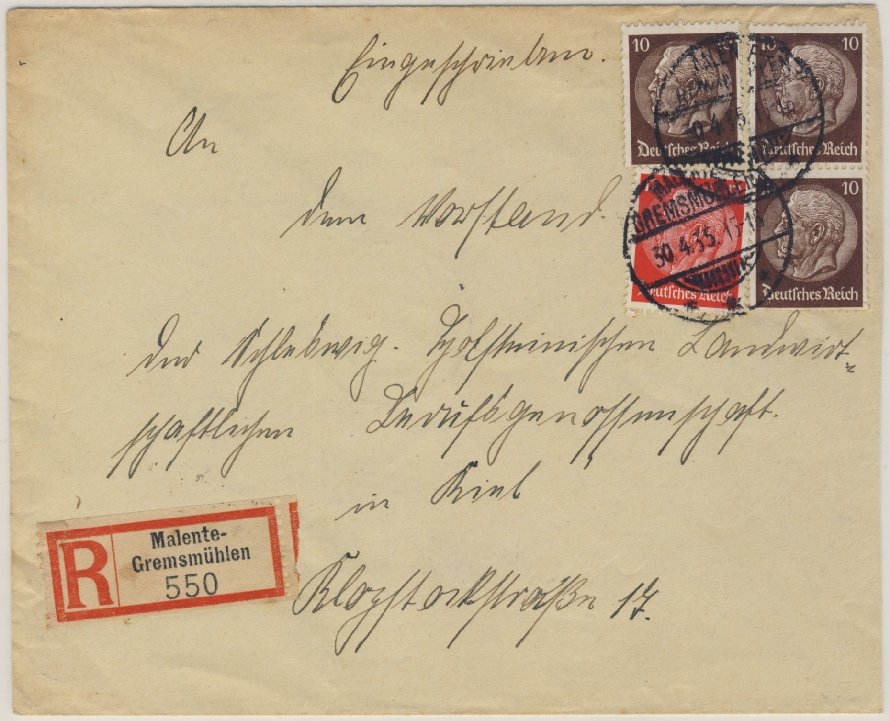 Eingeschrieben.
An
dem Vorstand
der Schleswig-Holsteinischen Landwirt-
schaftlichen Berufsgenossenschaft.
in Kiel
Klopstockstraße 17.
R
Malente-
Gremsmühlen
550
10
10 10
Deutsches Reich
Deutsches Reich
MALENTE
GREMSMÜHLEN
30.4.35.
10
Deutsches Reich
Deutsches Reich